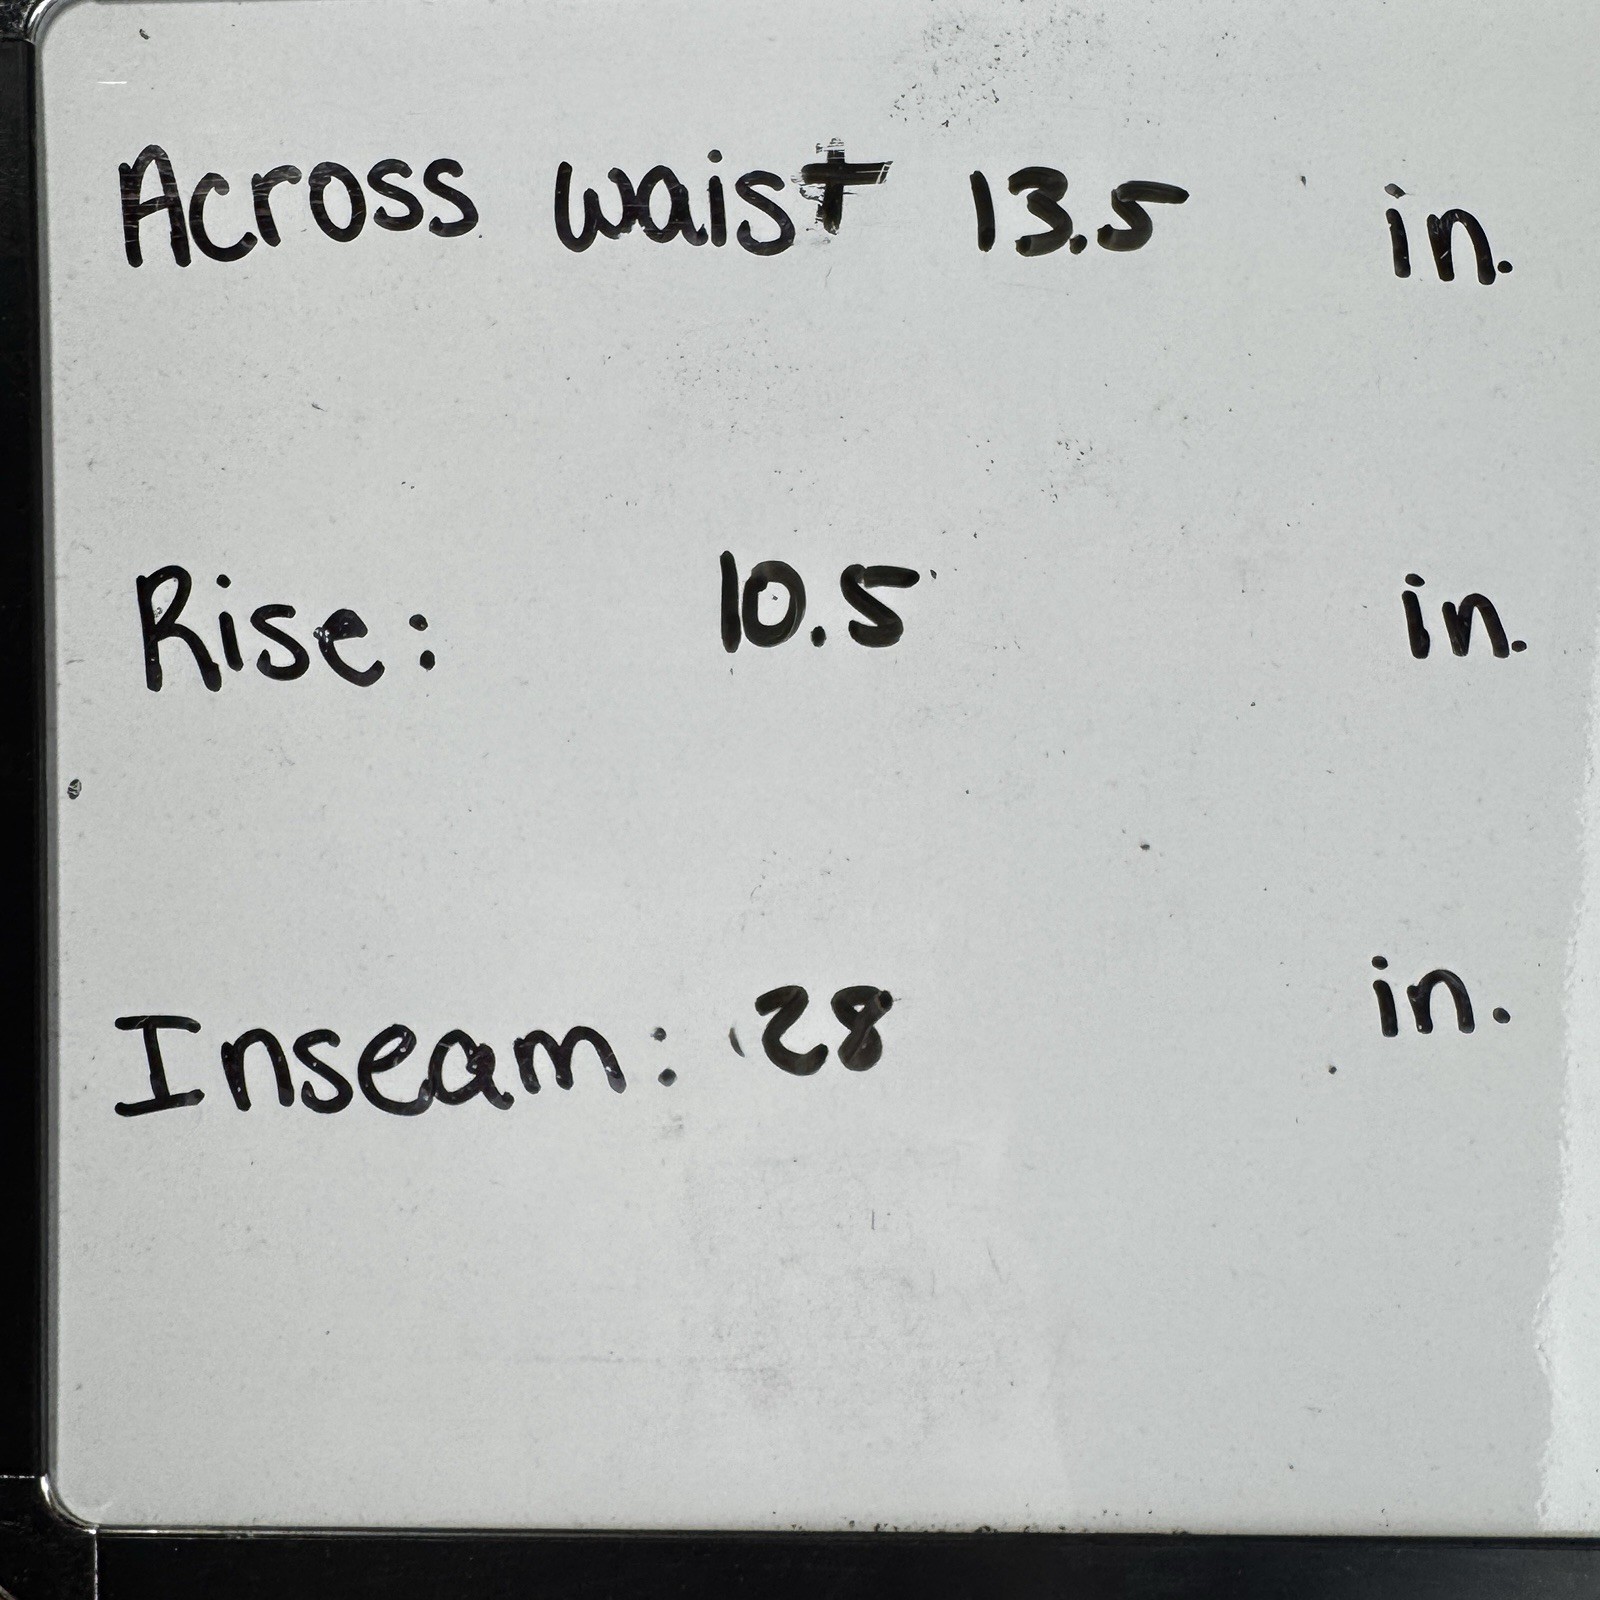 Across waist 13.5 in.
Rise: 10.5 in.
Inseam: 28 in.